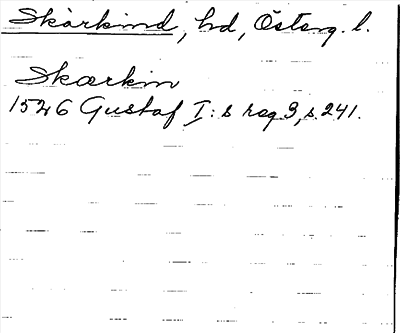 Skärkind, hd, Österg. l.
Skærkin
1546 Gustaf I:s reg 9, s. 241.